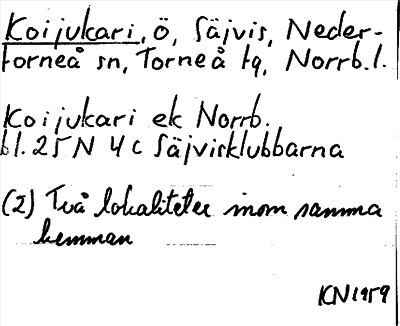 Koijukari, ö, Säjvis, Neder-
torneå sn, Torneå tg, Norrb.l.
Koijukari ek Norrb.
bl. 25 N 4 c Säjvisklubbarna
(2) Två lokaliteter inom samma
hemman
KN 1959